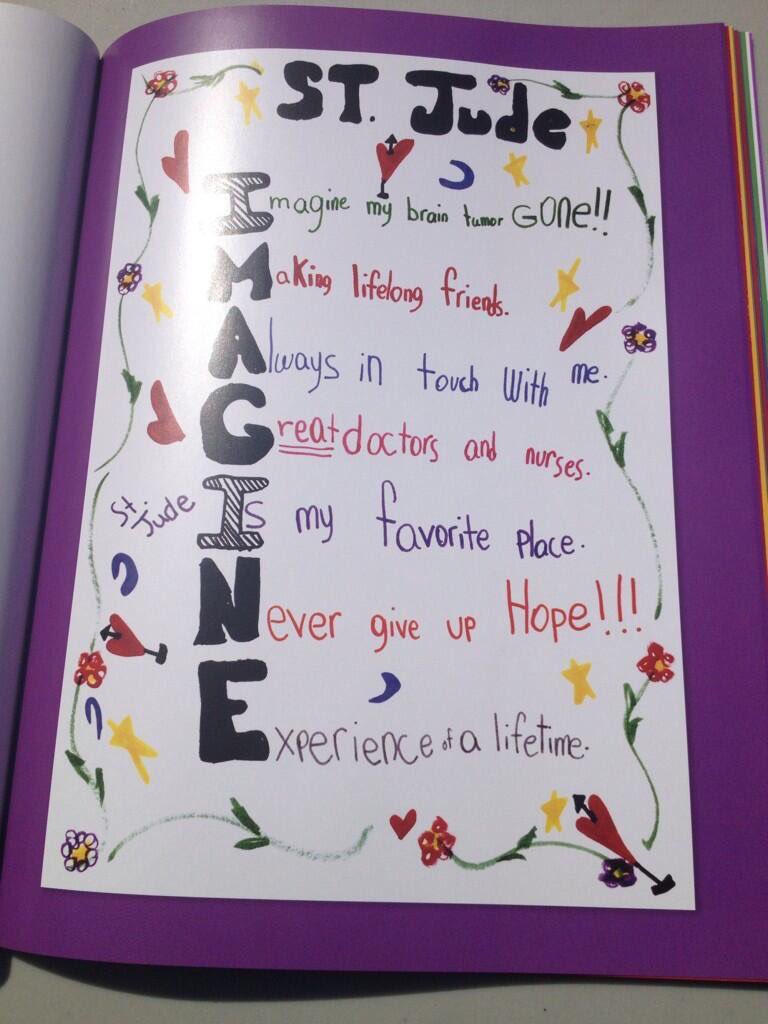 ST. Jude
Imagine my brain tumor GONE!!
Making lifelong friends.
Always in touch With me.
Great doctors and nurses.
St Jude Is my favorite place.
Never give up Hope!!!
Experience of a lifetime.